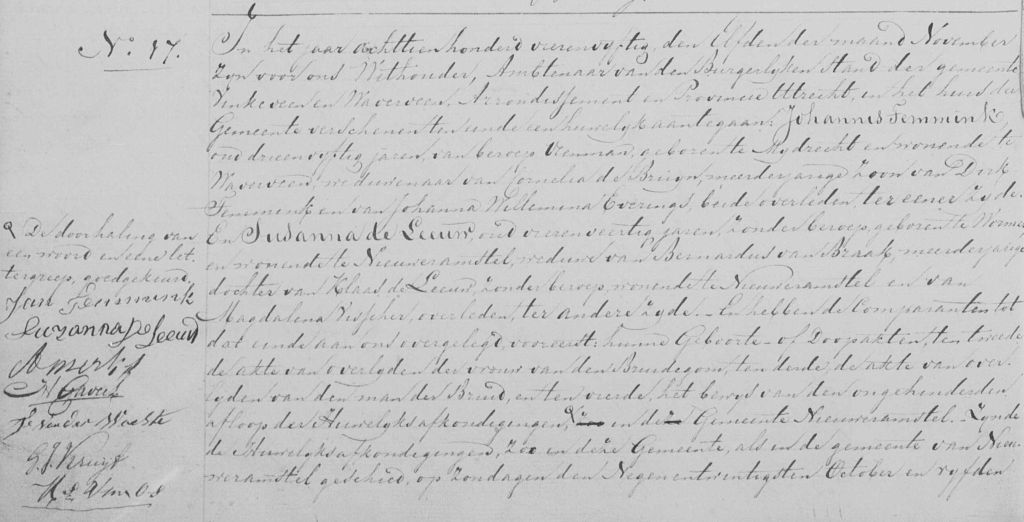 No. 17.
In het jaar achttienhonderd vierenvyftig, den Elfden der maand November
zyn voor ons Wethouder, Ambtenaar van den Burgerlyken Stand der gemeente
Vinkeveen en Waverveen, Arrondissement en Provincie Utrecht, in het huis der
Gemeente verschenen ten einde een huwelyk aantegaan: Johannis Femmink,
oud drieenvyftig jaren, van beroep Veenman, geboren te Mydrecht en wonende te
Waverveen, weduwenaar van Cornelia de Bruyn, meerderjarige Zoon van Dirk
Femmink en van Johanna Willemina Everings, beide overleden, ter eener zyde.
En Susanna de Leeuw, oud vierenveertig jaren, zonder beroep, geboren te Wormer
en wonende te Nieuweramstel, weduwe van Bernardus van Braak, meerderjarige
dochter van Klaas de Leeuw, zonder beroep, wonende te Nieuweramstel en van
Magdalena Visscher, overleden, ter andere zyde. En hebben de Comparanten tot
dat einde aan ons overgelegd, vooreerst: hunne Geboorte- of Doopakten, ten tweede
de akte van overlyden der vrouw van den Bruidegom, ten derde, de akte van over-
lyden van den man der Bruid, en ten vierde, het bewys van den ongehinderden
afloop der Huwelyksafkondigingen, in de Gemeente Nieuweramstel. Zynde
de Huwelyksafkondigingen, zoo in deze Gemeente, als in de gemeente van Nieu-
weramstel geschied, op Zondagen den Negenentwintigsten October en vyfden
De doorhaling van
een woord en eene let-
tergreep, goedgekeurd.
Jan Femmink
Suzanna de Leeuw
F. van der Wachte